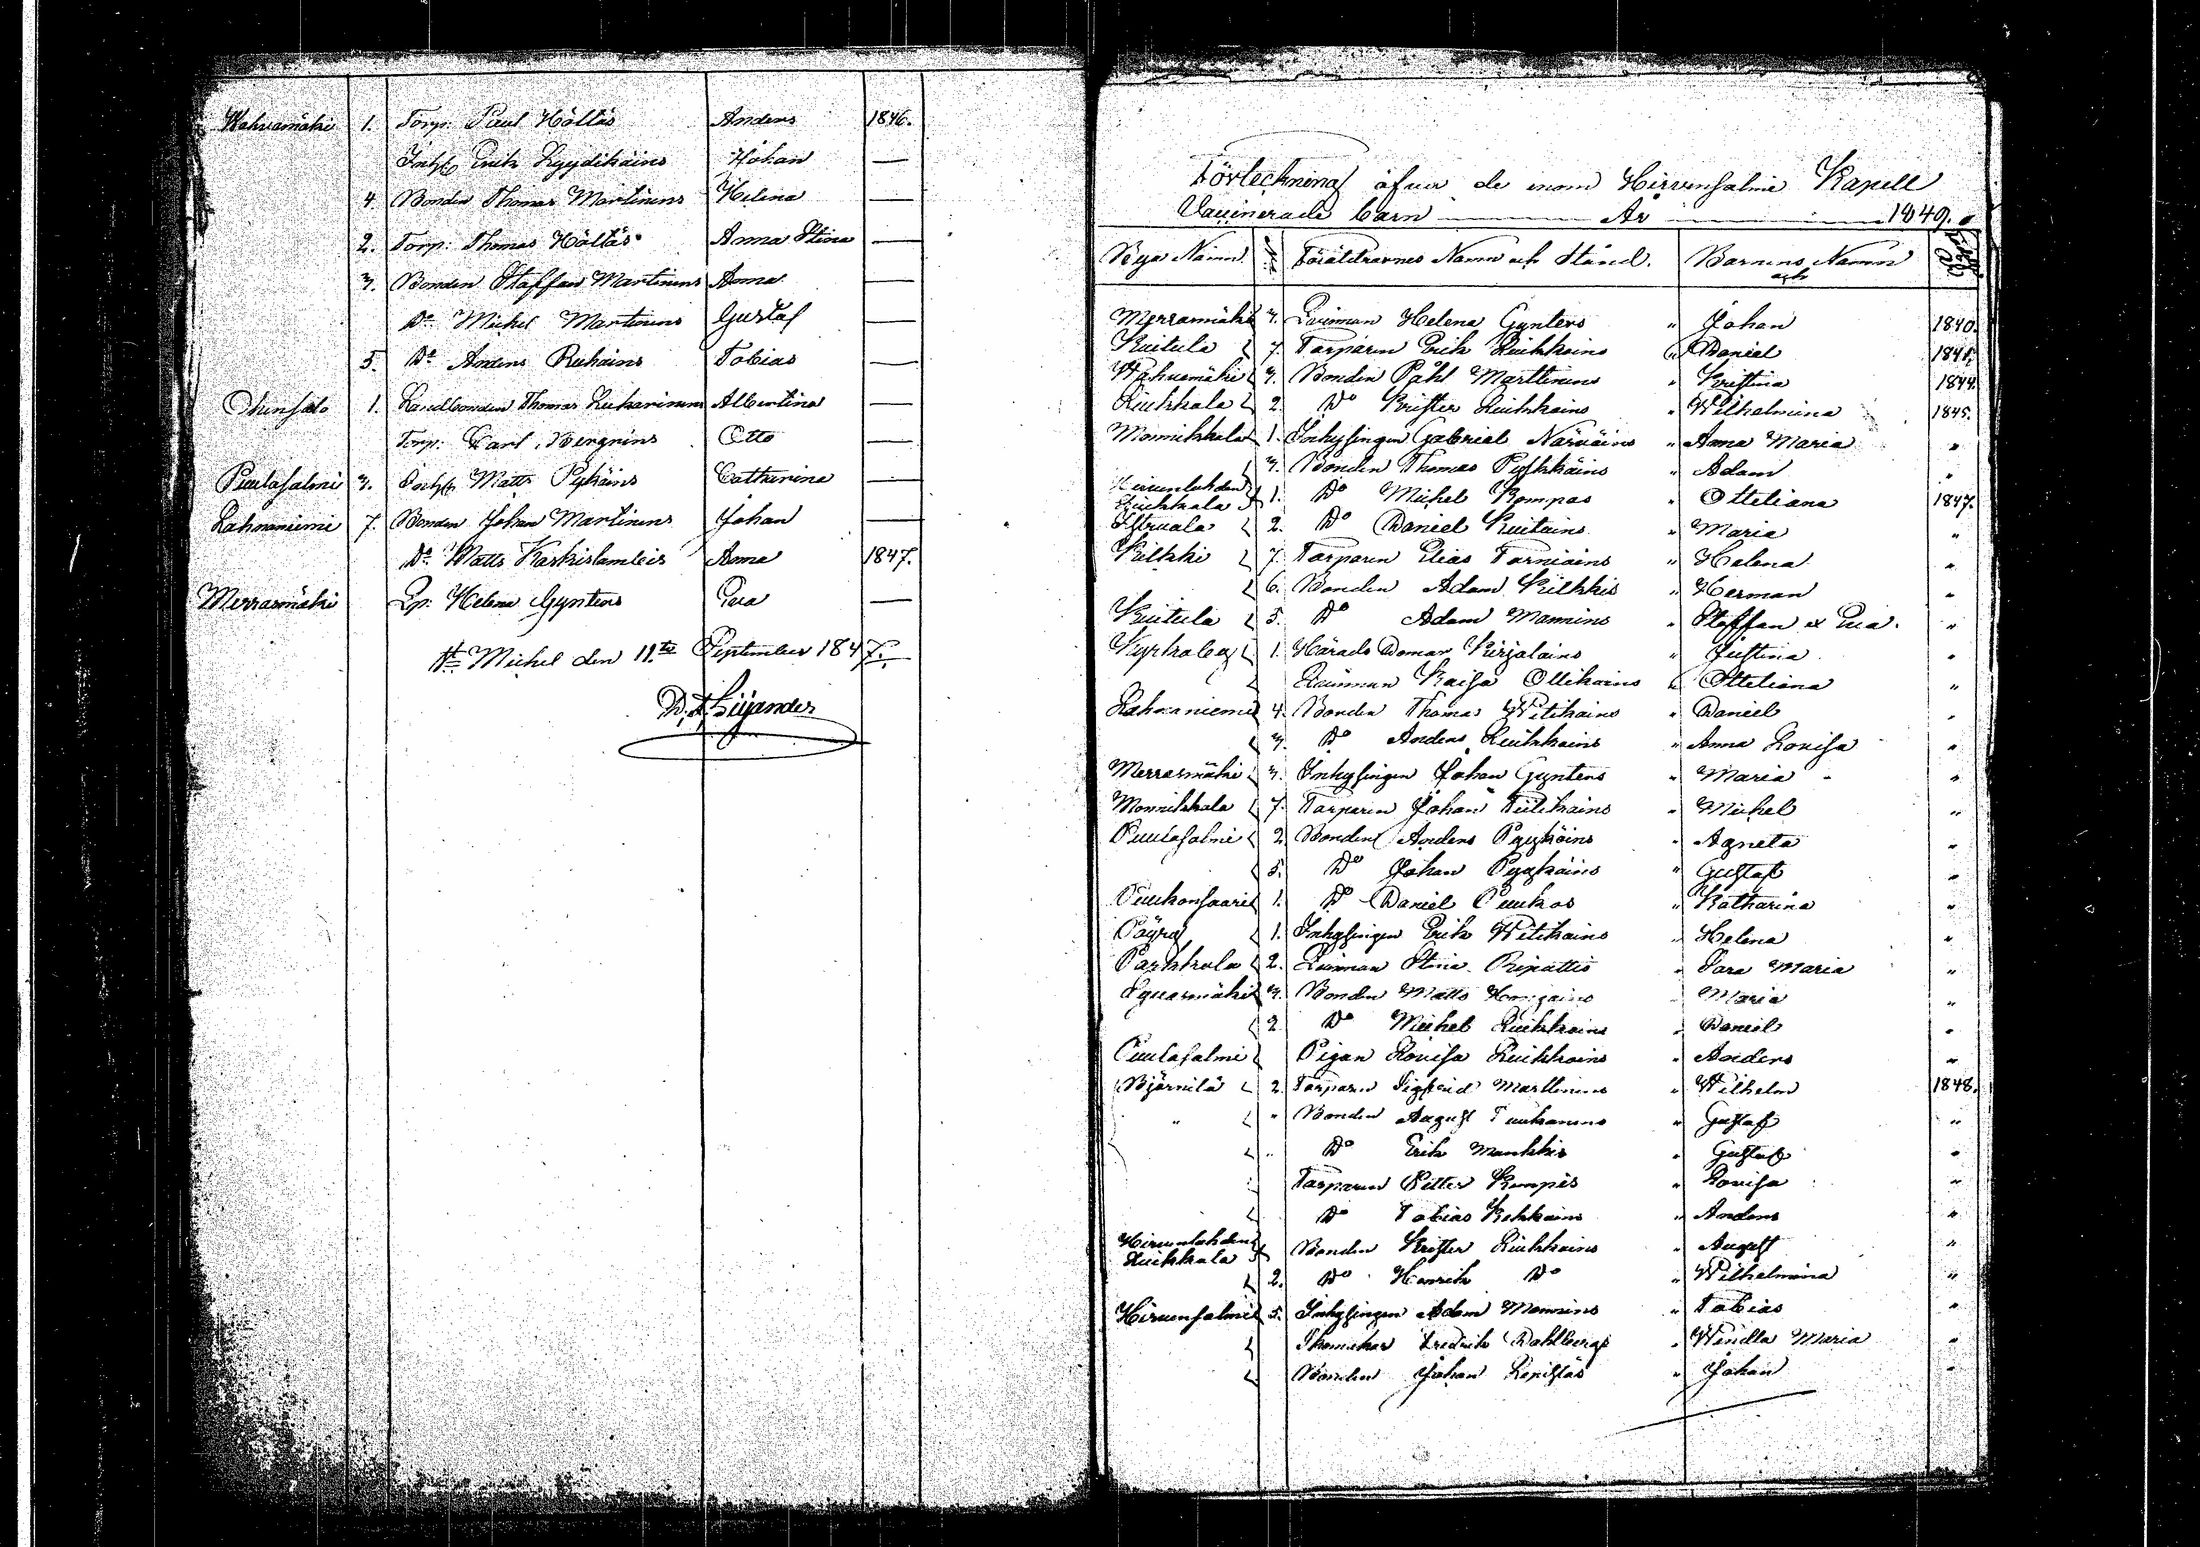 Wahvamäki 1. Torp: Paul Höltäs Anders 1846.
Inh: Erik Lyydikäins Johan —
4 Bonden Thomas Martinens Helena —
2. Torp: Thomas Höltäs Anna Stina —
3. Bonden Staffan Martinens Anna —
Do Michel Martinens Gustaf —
5. Do Anders Ruhains Tobias —
1. Landbonden Thomas Albertina —
Torp: Carl Otto —
Puulasalmi 3. Matts Pykäins Catharina —
Lahnaniemi 7. Bonden Johan Martinens Johan —
Do Matts Anna 1847.
Merrasmäki Lp: Helena Gyntens Eva —
St Michel den 11te September 1847.
Förteckning öfver de inom Hirvensalmi Kapell
Vaccinerade barn År 1849.
Bya Namn No Föräldrarnes Namn och Stånd. Barnens Namn och
Merrasmäki 3. Qvinnan Helena Gyntens " Johan 1840.
Kuitula 7. Torparen Erik Liukkoins " Daniel 1841.
Wahvamäki 3. Bonden Påhl Marttinens " Kristina 1844.
Liukkala 2. Do Krister Liukkoins " Wilhelmina 1845.
Monnikkala 1. Inhysingen Gabriel Närväins " Anna Maria "
3. Bonden Thomas Pylkkäins " Adam "
Hirvenlahden
Liukkala 1. Do Michel Kompas " Otteliana 1847.
2. Do Daniel Kuitains " Maria "
Kilkki 7. Torparen Elias Torniains " Helena "
6. Bonden Adam Kilkkis " Herman "
Kuitula 5. Do Adam Mannins " Staffan et Eva. "
Kyrkoby 1. Härads Domar Kirjalains " Justina "
Qvinnan Kaisa Ollikains " Otteliana "
Lahnaniemi 4. Bonden Thomas Witikains " Daniel "
3. Do Anders Liukkoins " Anna Lovisa "
Merrasmäki 3. Inhysingen Johan Gyntens " Maria "
Monnikkala 7. Torparen Johan Tiilikains " Michel "
Puulasalmi 2. Bonden Anders Pyykäins " Agneta "
5. Do Johan Pyykäins " Gustaf "
Puukonsaari 1. Do Daniel Puukos " Katharina "
Päyry 1. Inhysingen Erik Witikains " Helena "
Parkkola 2. Qvinnan Stina Ripattis " Sara Maria "
Syväsmäki 3. Bonden Matts " Maria "
2 Do Michel Liukkoins " Daniel "
Puulasalmi Pigan Lovisa Liukkoins " Anders "
Björnilä 2. Torparen Sigfrid Marttinens " Wilhelm 1848.
" " Bonden August " Gustaf "
" Do Erik Mankkis " Gustaf "
Torparen Petter Kompis " Lovisa "
Do Tobias Kekkoins " Anders "
Hirvenlahden
Liukkala Bonden Krister Liukkoins " August "
2. Do Henrik Do " Wilhelmina "
Hirvensalmi 5. Inhysingen Adam Mannins " Tobias "
Fredrik Dahlbergs " Wendla Maria "
Bonden Johan " Johan "